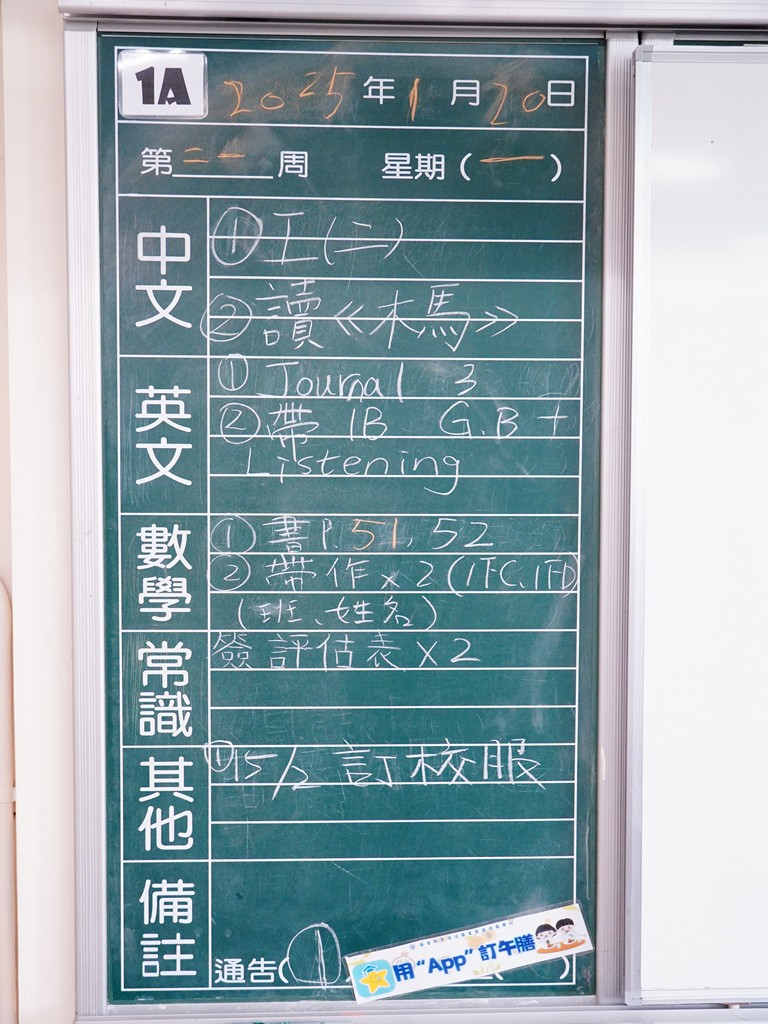 1A 2025年1月20日
第二一周 星期(一)
中文
①工(二)
②讀《木馬》
英文
① Journal 3
②帶 1B G.B +
Listening
數學
①書P.51, 52
②帶作x2(1下C、1下D)
(班、姓名)
常識
簽評估表x2
其他
①15/2 訂校服
備註
通告(1
用“App”訂午膳
)